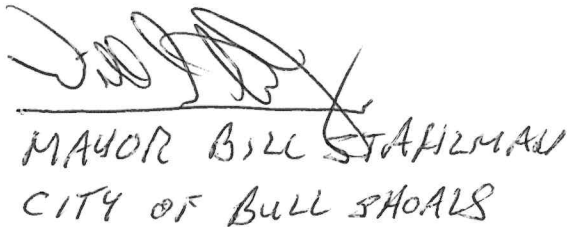 MAYOR BILL STAHLMAN
CITY OF BULL SHOALS